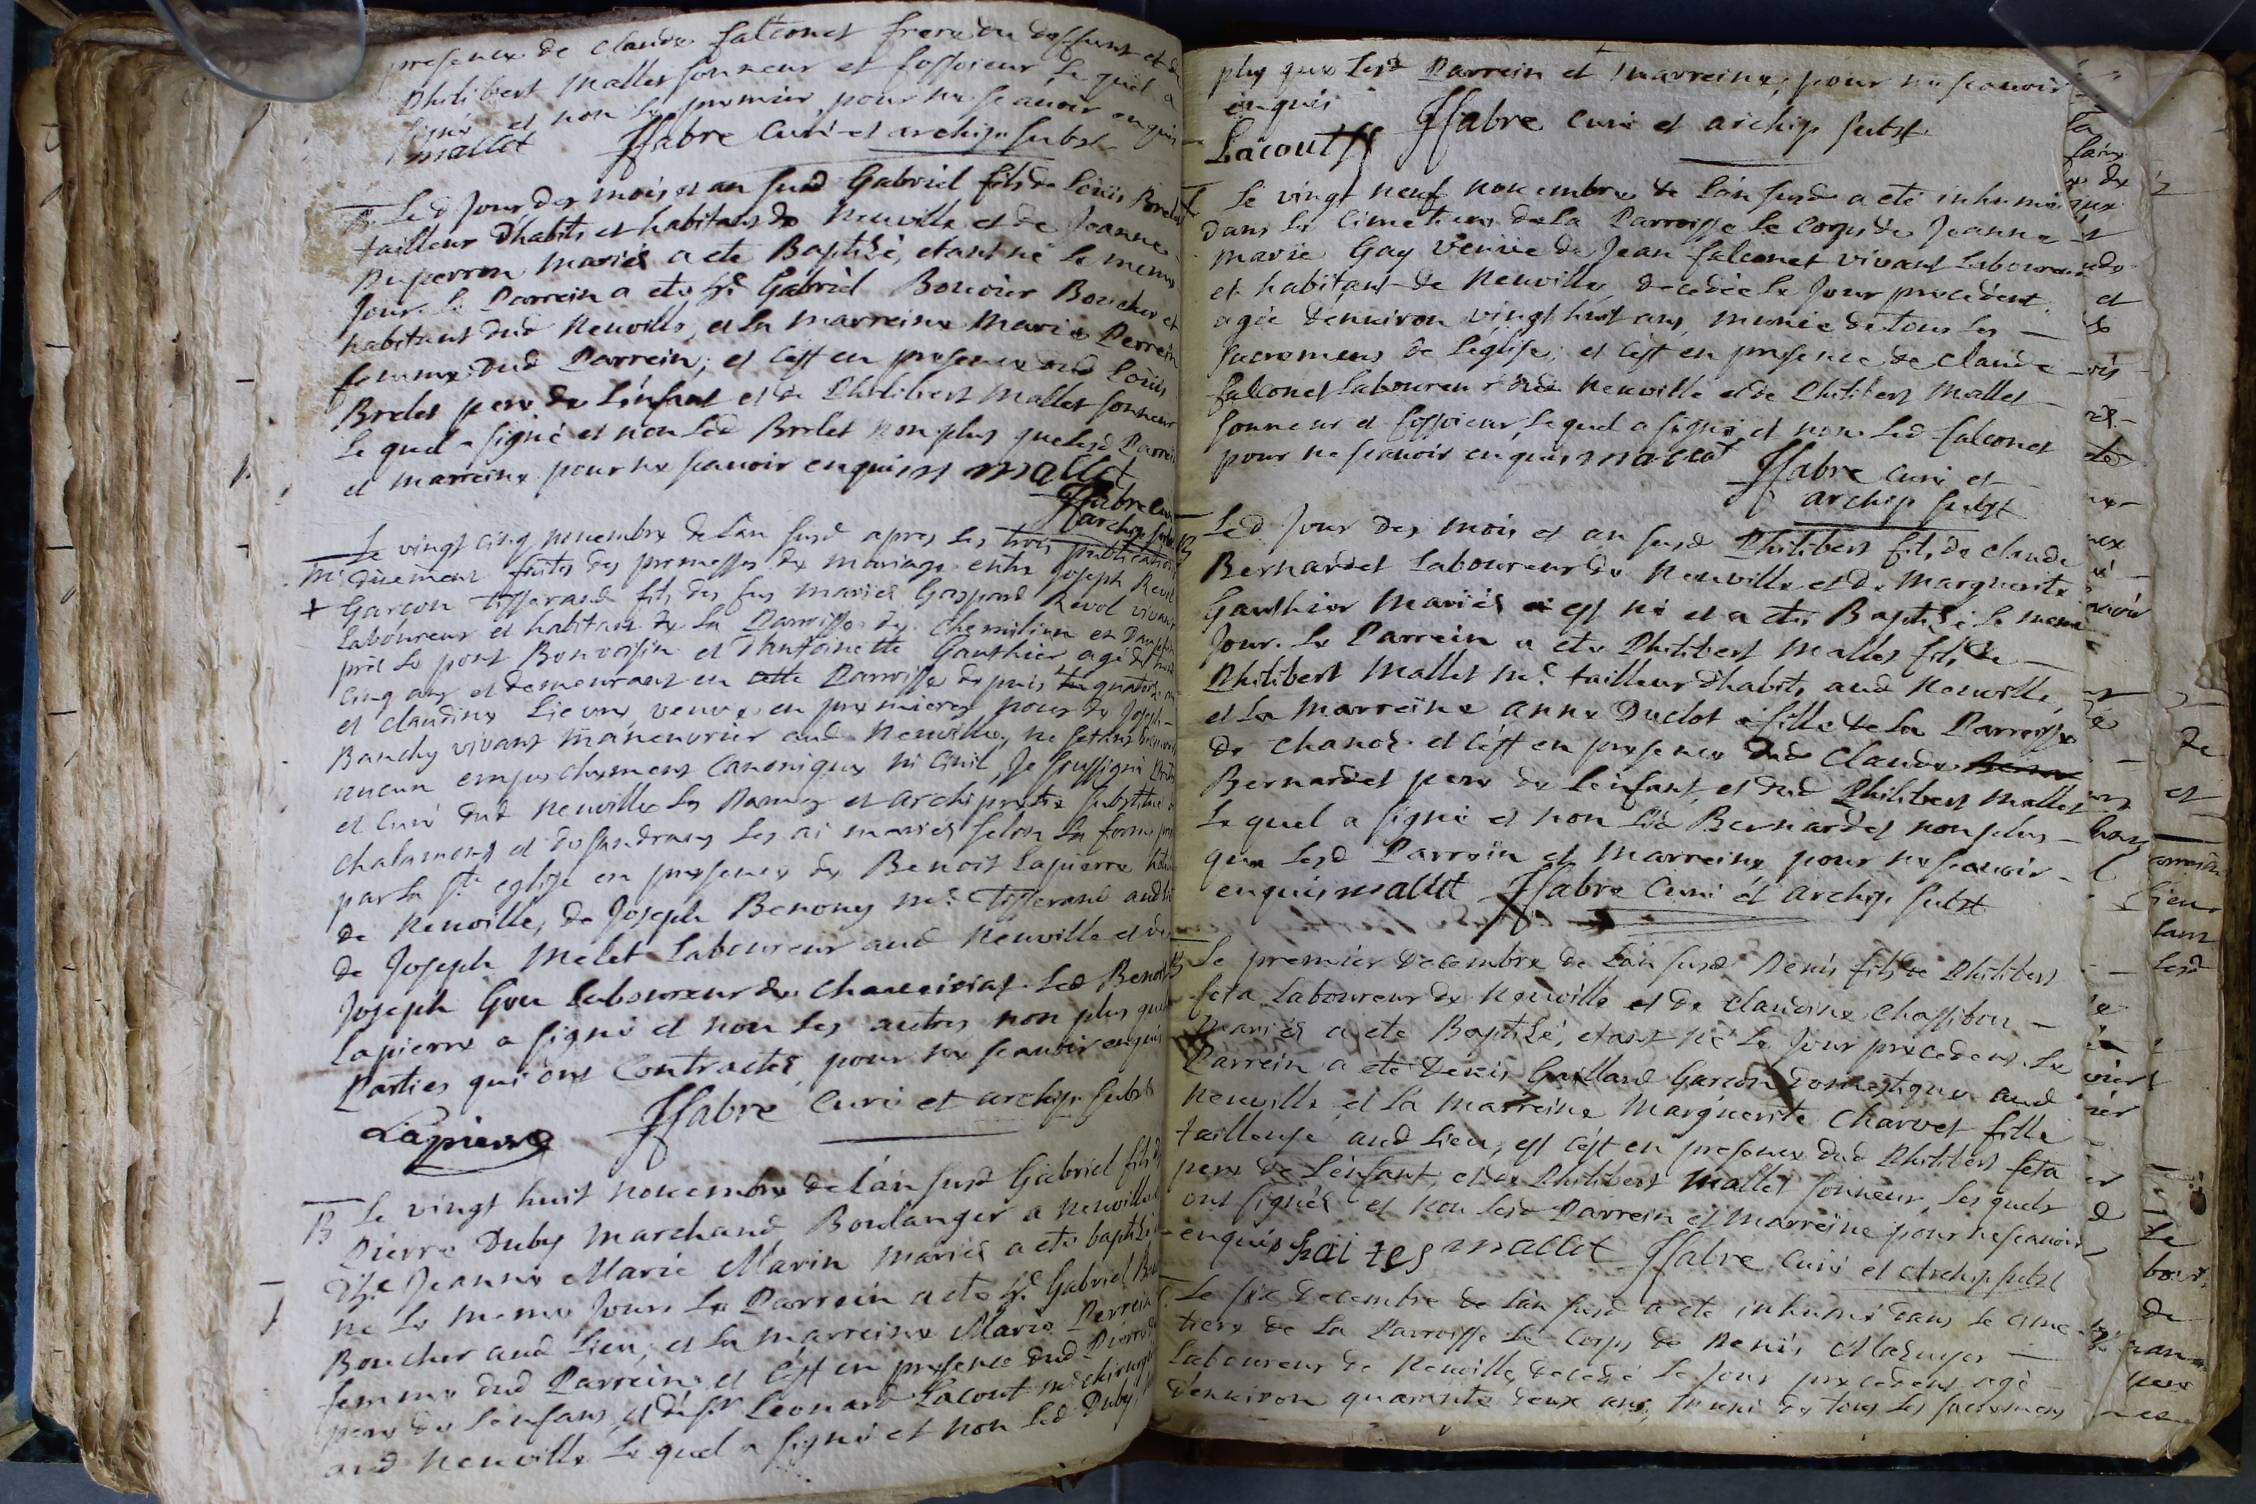 presence de Claude falconet frere du deffunt et de
Philibert mallet sonneur et fossoieur, le quel a
signé et non le premier pour ne scavoir enquis
mallet ffabre curé et archip. subst.
B Led jour des mois et an susd Gabriel fils de Loüis Brelet
tailleur d'habits et habitant de Neuville et de Jeanne
Duperron mariés a eté Baptisé, etant né le meme
jour. Le Parrein a eté Sr. Gabriel Bouvier Boucher et
habitant dud Neuville, et la marreine Marie Perrein
femme dud Parrein; et c'est en presence dud Loüis
Brelet pere de l'enfant et de Philibert mallet sonneur
le quel a signé et non led Brelet non plus que lesd Parrein
et marreine pour ne scavoir enquis mallet
ffabre curé
archip subst
Le vingt cinq novembre de l'an susd apres les trois publications
M düement faites des promesses de mariage entre Joseph Revol
+ Garçon Tisserand fils des fus mariés Gaspard Revol vivant
laboureur et habitant de la Parroisse de Chemilieu en Dauphiné
près le pont Bonvoisin et d'Antoinette Gauthier agé de
cinq ans et demeurant en cette Parroisse depuis quatorze ans
et Claudine Lievre veuve en premieres noces de Joseph
Banchy vivant manœuvrier aud Neuville, ne s'etant decouvert
aucun empeschement canonique ni civil, Je soussigné Prêtre
et curé dud Neuville les Dames et archiprêtre substitué de
chalamont et de sandrans les ai mariés selon la forme
par la Ste eglise en presence de Benoit Lapierre
de Neuville, de Joseph Benony me. Tisserand aud lieu
de Joseph Melet Laboureur aud Neuville et de
Joseph Gou laboureur de Chaveiriat. Led Benoit
Lapierre a signé et non les autres non plus que les
Parties qui ont contractés, pour ne scavoir enquis
ffabre curé et archip. subst
Lapierre
B Le vingt huit novembre de l'an susd Gabriel fils de
Pierre Duby Marchand Boulanger a Neuville et
Jeanne Marie Marin mariés a eté baptisé
né le meme jour. Le Parrein a eté Sr. Gabriel
Boucher aud lieu, et la marreine Marie Perrein
femme dud Parrein, et c'est en presence dud Pierre
pere de l'enfant, et de Sr Leonard Lacout me chirurgien
aud Neuville le quel a signé et non led Duby,
plus que lesd Parrein et marreine, pour ne scavoir
enquis
Lacout ffabre curé et archip subst
Le vingt neuf novembre de l'an susd a eté inhumé
dans le cimetiere de la Parroisse le corps de Jeanne
marie Gay veuve de Jean falconet vivant laboureur
et habitant de Neuville, decedée le jour precedent
agée d'environ vingt huit ans, munie de tous les
sacremens de l'eglise; et c'est en presence de claude
falconet laboureur dud Neuville et de Philibert Mallet
sonneur et fossoieur, le quel a signé, et non led falconet
pour ne scavoir enquis mallet ffabre curé et
archip subst
B Led jour des mois et an susd Philibert fils de claude
Bernardet laboureur de Neuville et de Marguerite
Gauthier mariés est né et a eté Baptisé le meme
jour. Le Parrein a eté Philibert Mallet fils de
Philibert Mallet me. tailleur d'habits aud Neuville,
et la marreine anne Duclot fille de la Parroisse
de Chanoz. et c'est en presence dud Claude
Bernardet pere de l'enfant, et dud Philibert Mallet
le quel a signé et non led Bernardet non plus
que lesd Parrein et Marreine pour ne scavoir
enquis mallet ffabre curé et archip. subst
B Le premier decembre de l'an susd Denis fils de Philibert
feta laboureur de Neuville et de claudine Chassibou
mariés a eté Baptisé, etant né le jour precedent. Le
Parrein a eté Denis Gaillard Garcon domestique aud
Neuville et la marreine Marguerite Charvet fille
tailleuse aud lieu, et c'est en presence dud Philibert feta
pere de l'enfant, et de Philibert mallet sonneur, les quels
ont signés et non lesd Parrein et marreine pour ne scavoir
enquis mallet ffabre curé et archip. subst
Le six decembre de l'an susd a eté inhumé dans le cime-
tiere de la Parroisse le corps de Denis Maduyer
laboureur de Neuville, decedé le jour precedent agé
d'environ quarante deux ans, muni de tous les sacremens